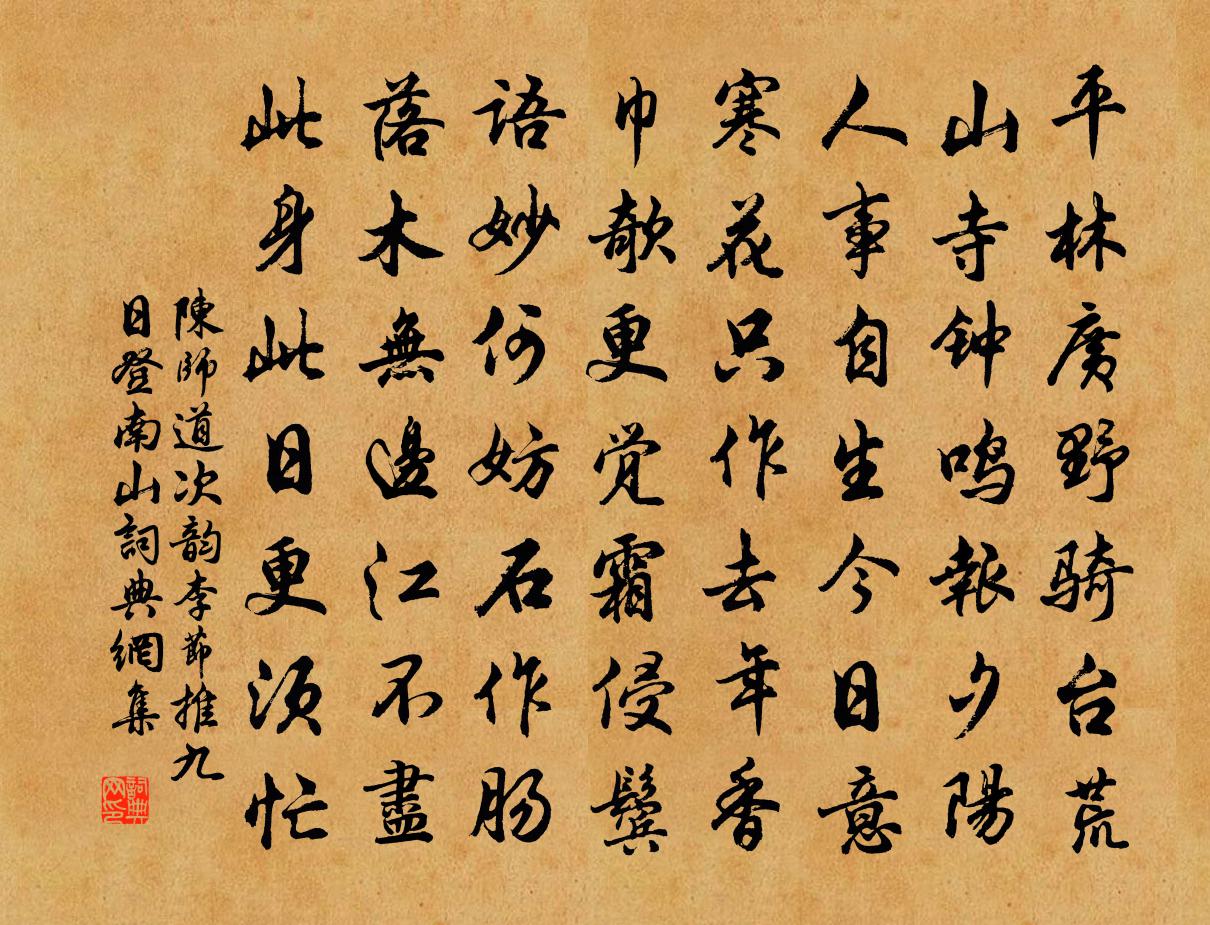 平林廣野騎台荒
山寺钟鸣報夕陽
人事自生今日意
寒花只作去年香
巾欹更觉霜侵鬓
語妙何妨石作肠
落木無邊江不盡
此身此日更须忙
陳師道次韵李節推九
日登南山詞典網集
詞典
网印